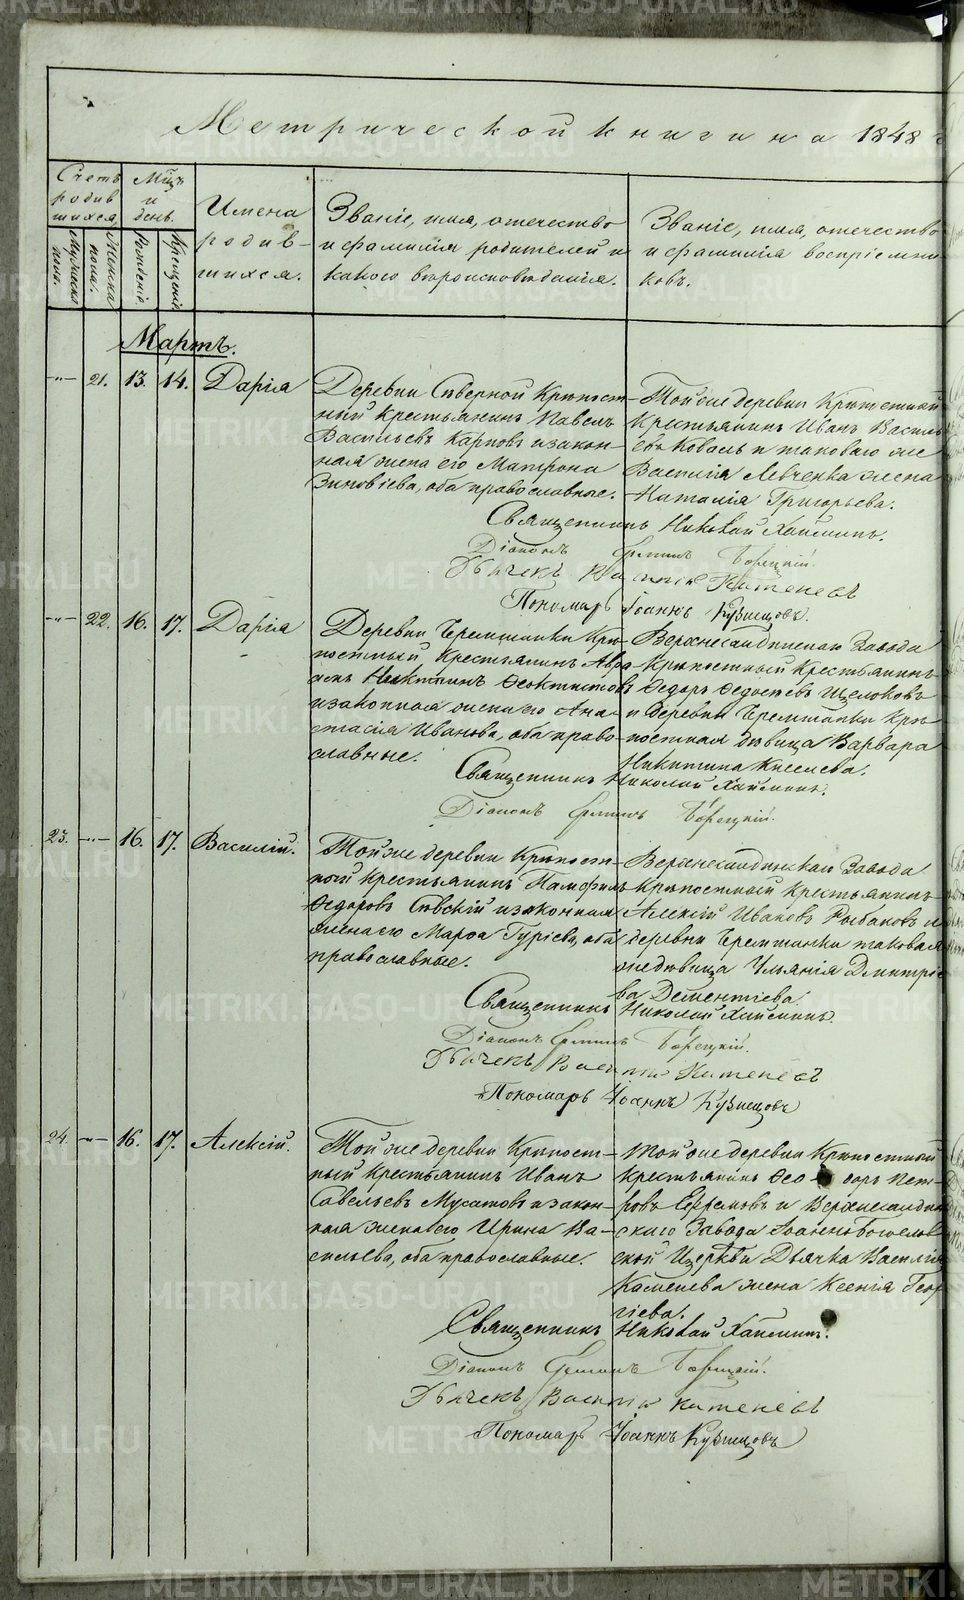 Метрической книги на 1848 г
Счетъ родившихся
Мужска пола.
Женска пола.
Мцъ и день.
Рожденія.
Крещенія.
Имена родив-шихся.
Званіе, имя, отечество
и фамилія родителей и
какого вѣроисповѣданія.
Званіе, имя, отечество
и фамилія воспріемни-
ковъ.
Мартъ.
-"- 21. 13. 14. Дарія
Деревни Сѣверной Крѣпост-
ный крестьянинъ Павелъ
Васильевъ Карповъ и закон-
ная жена его Матрона
Зиновіева, оба православные.
Той же деревни Крѣпостный
Крестьянинъ Иванъ Василь
евъ Коваль и таковаго же
Василія Левченка жена
Наталія Григорьева.
Священникъ Николай
Діаконъ Борецкій.
Дьячекъ Василій Каменевъ
Пономарь Іоаннъ Кузнецовъ.
-"- 22. 16. 17. Дарія
Деревни Беремшанки Крѣ-
постный Крестьянинъ Авра-
амъ Никитинъ Феоктистовъ
и законная жена его Ана-
стасія Иванова, оба право-
славные.
Верхнесандинскаго Завода
Крѣпостный Крестьянинъ
Федоръ Федосѣевъ Щелоковъ
и деревни Беремшанки Крѣ-
постная дѣвица Варвара
Никитина Киселева.
Священникъ Николай
Діаконъ Борецкій.
23. -"- 16. 17. Василій.
Той же деревни Крѣпост-
ный Крестьянинъ Памфилъ
Федоровъ Сѣвскій и законная
жена его Марфа Гуріева, оба
православные.
Верхнесандинскаго Завода
Крѣпостный крестьянинъ
Алексій Ивановъ Рыбаковъ и
деревни Беремшанки таковая
же дѣвица Ульянія Дмитріе
ва Дементіева.
Священникъ Николай
Діаконъ Борецкій.
Дьячекъ Василій Каменевъ
Пономарь Іоаннъ Кузнецовъ
24. -"- 16. 17. Алексій.
Той же деревни Крѣпост-
ный крестьянинъ Иванъ
Савельевъ Мусатовъ и закон-
ная жена его Ирина Ва-
сильева, оба православные.
Той же деревни Крѣпостный
Крестьянинъ Феодоръ Пет-
ровъ Ефремовъ и Верхнесандин
скаго Завода Іоаннобогослов
ской Церкви Дьячка Василія
Каменева жена Ксенія Геор
гіева.
Священникъ Николай
Діаконъ Борецкій.
Дьячекъ Василій Каменевъ
Пономарь Іоаннъ Кузнецовъ
METRIKI.GASO-URAL.RU